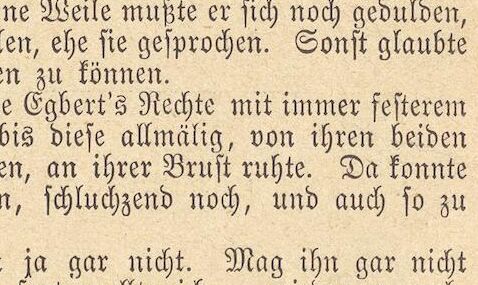 ne Weile mußte er sich noch gedulden,
len, ehe sie gesprochen. Sonst glaubte
en zu können.
e Egbert's Rechte mit immer festerem
bis diese allmälig, von ihren beiden
en, an ihrer Brust ruhte. Da konnte
n, schluchzend noch, und auch so zu
ja gar nicht. Mag ihn gar nicht